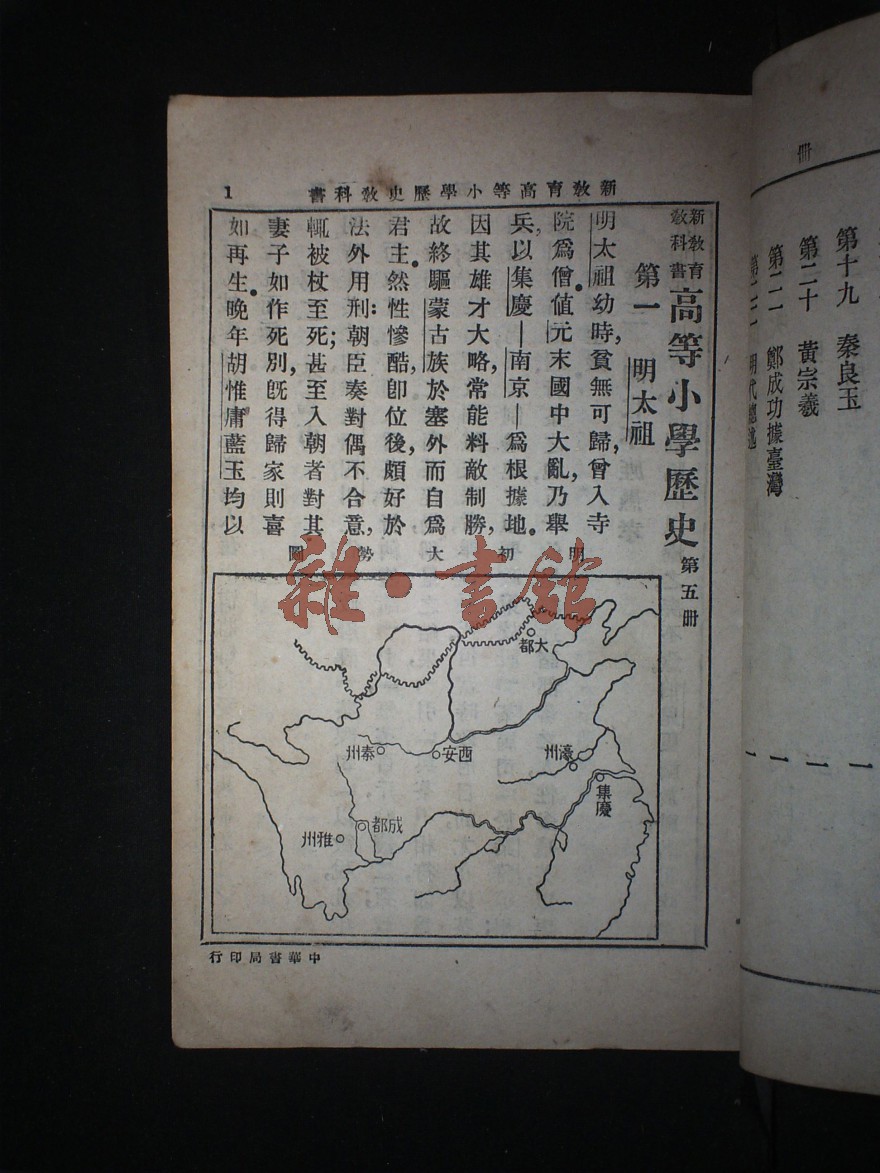 冊
第十九　秦良玉
第二十　黃宗羲
第二一　鄭成功據臺灣
一
一
一
一
新敎育高等小學歷史敎科書
1
新敎育
敎科書
高等小學歷史 第五冊
第一　明太祖
明太祖幼時，貧無可歸，曾入寺
院爲僧。値元末國中大亂，乃舉
兵，以集慶—南京—爲根據地。
因其雄才大略，常能料敵制勝，
故終驅蒙古族於塞外而自爲
君主。然性慘酷，卽位後，頗好於
法外用刑：朝臣奏對偶不合意，
輒被杖至死；甚至入朝者對其
妻子如作死別，旣得歸家則喜
如再生。晚年胡惟庸藍玉均以
明初大勢圖
大都
秦州
西安
濠州
集慶
成都
雅州
中華書局印行
雜·書館